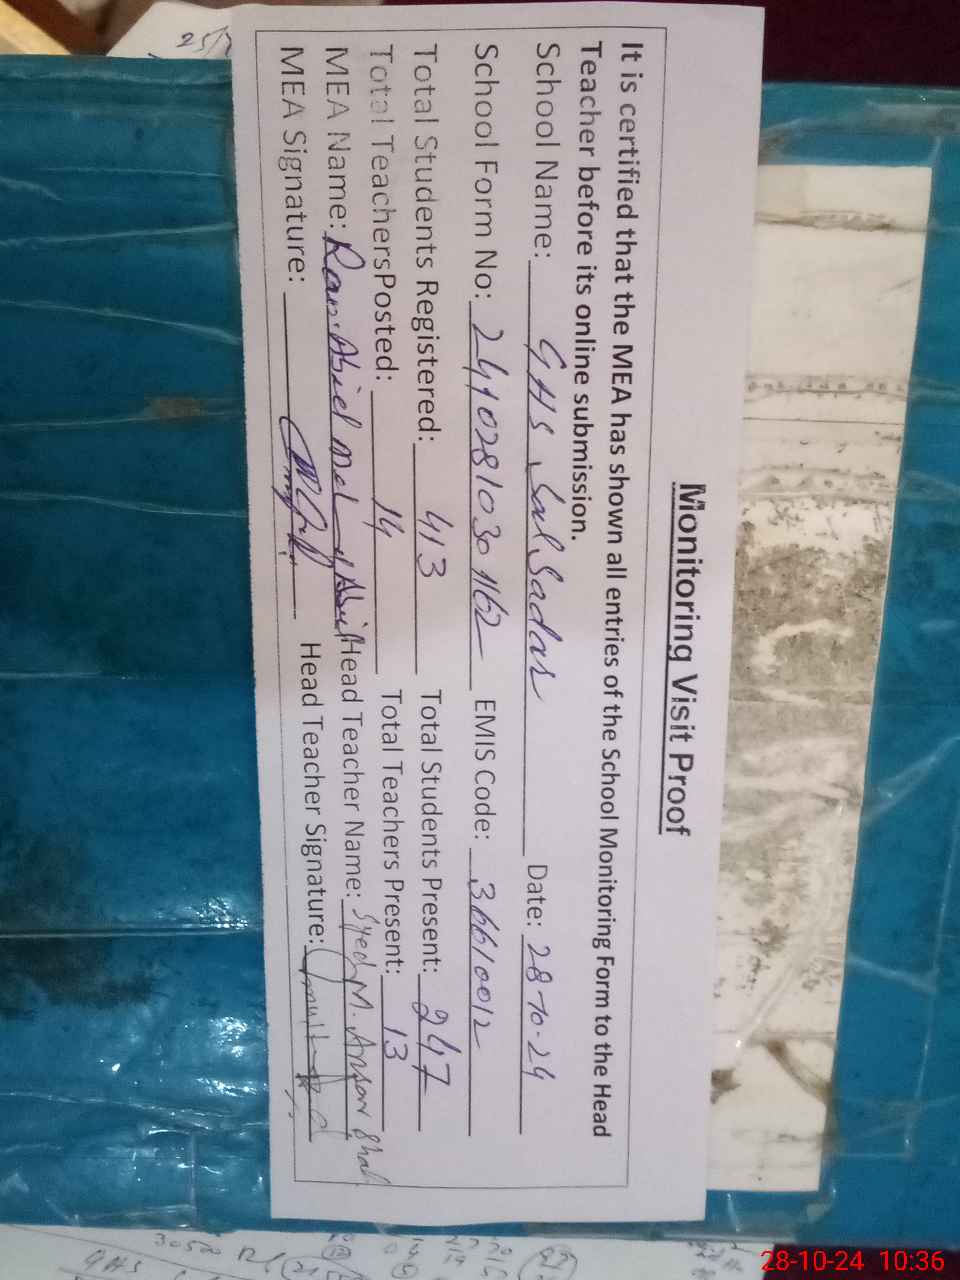 Monitoring Visit Proof
It is certified that the MEA has shown all entries of the School Monitoring Form to the Head
Teacher before its online submission.
School Name: GHS Sadar Date: 28-10-24
School Form No: 24102810301162 EMIS Code: 36610012
Total Students Registered: 413 Total Students Present: 247
Total TeachersPosted: 14 Total Teachers Present: 13
MEA Name: Head Teacher Name: Syed M. Shah
MEA Signature: Head Teacher Signature:
28-10-24 10:36